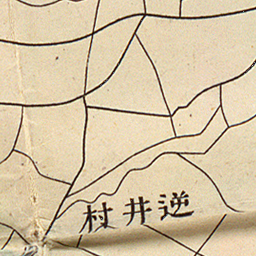 逆井村